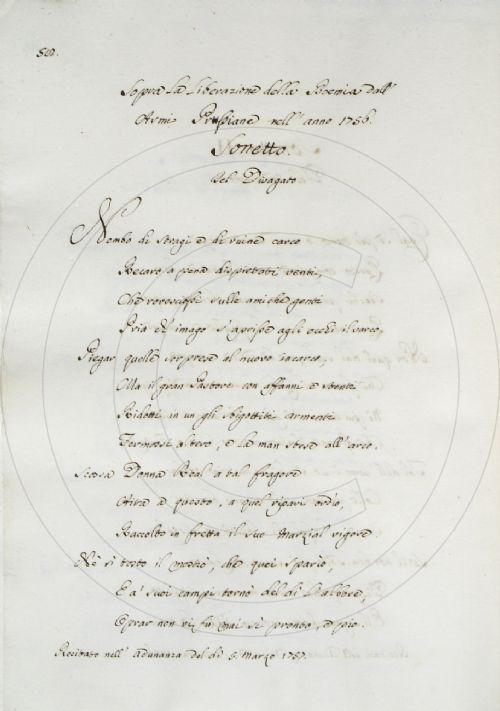 Sopra La Liberazione della Boemia dall'
Armi Prussiane nell' anno 1756.
Sonetto.
Del Divagato
Nembo di stragi e di ruine carco
Recaro a pena dispietati venti,
Che rovesciossi sulle amiche genti
Pria ch' imago s' aprisse agli occhi il varco,
Piegar quelle sorprese al nuovo incarco,
Ma il gran Pastore con affanni e stenti
Ridotti in un gli sbigottiti armenti
Fermossi altero, e la man stese all' arco.
Scossa Donna Real a tal fragore
Aita a questo, a quel ripari ordio,
Raccolto in fretta il suo Marzial vigore
Nè sì tosto il mostrò, che quei spario,
E a' suoi campi tornò del dì l' albore,
Oprar non vi fù mai sì pronto, e pio.
Recitato nell' Adunanza del dì 5. Marzo 1757.